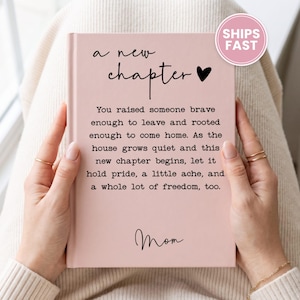 SHIPS
FAST
a new
chapter
You raised someone brave
enough to leave and rooted
enough to come home. As the
house grows quiet and this
new chapter begins, let it
hold pride, a little ache, and
a whole lot of freedom, too.
Mom